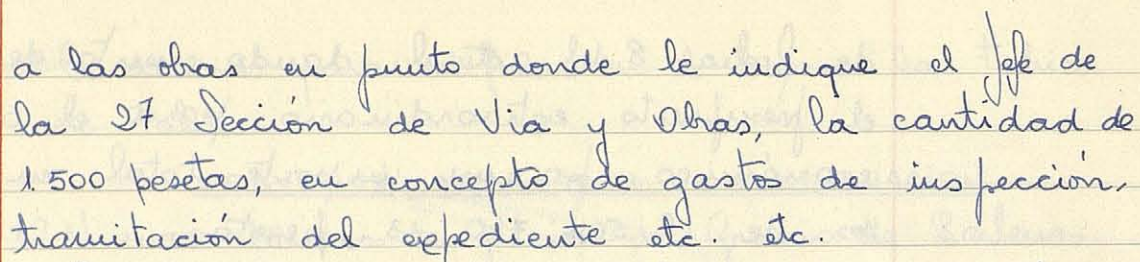 a las obras en punto donde le indique el Jefe de
la 27 Sección de Via y Obras, la cantidad de
1.500 pesetas, en concepto de gastos de inspección,
tramitación del expediente etc. etc.